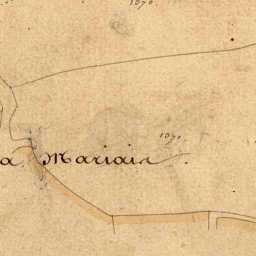 1070.
1071.
a Mariais.